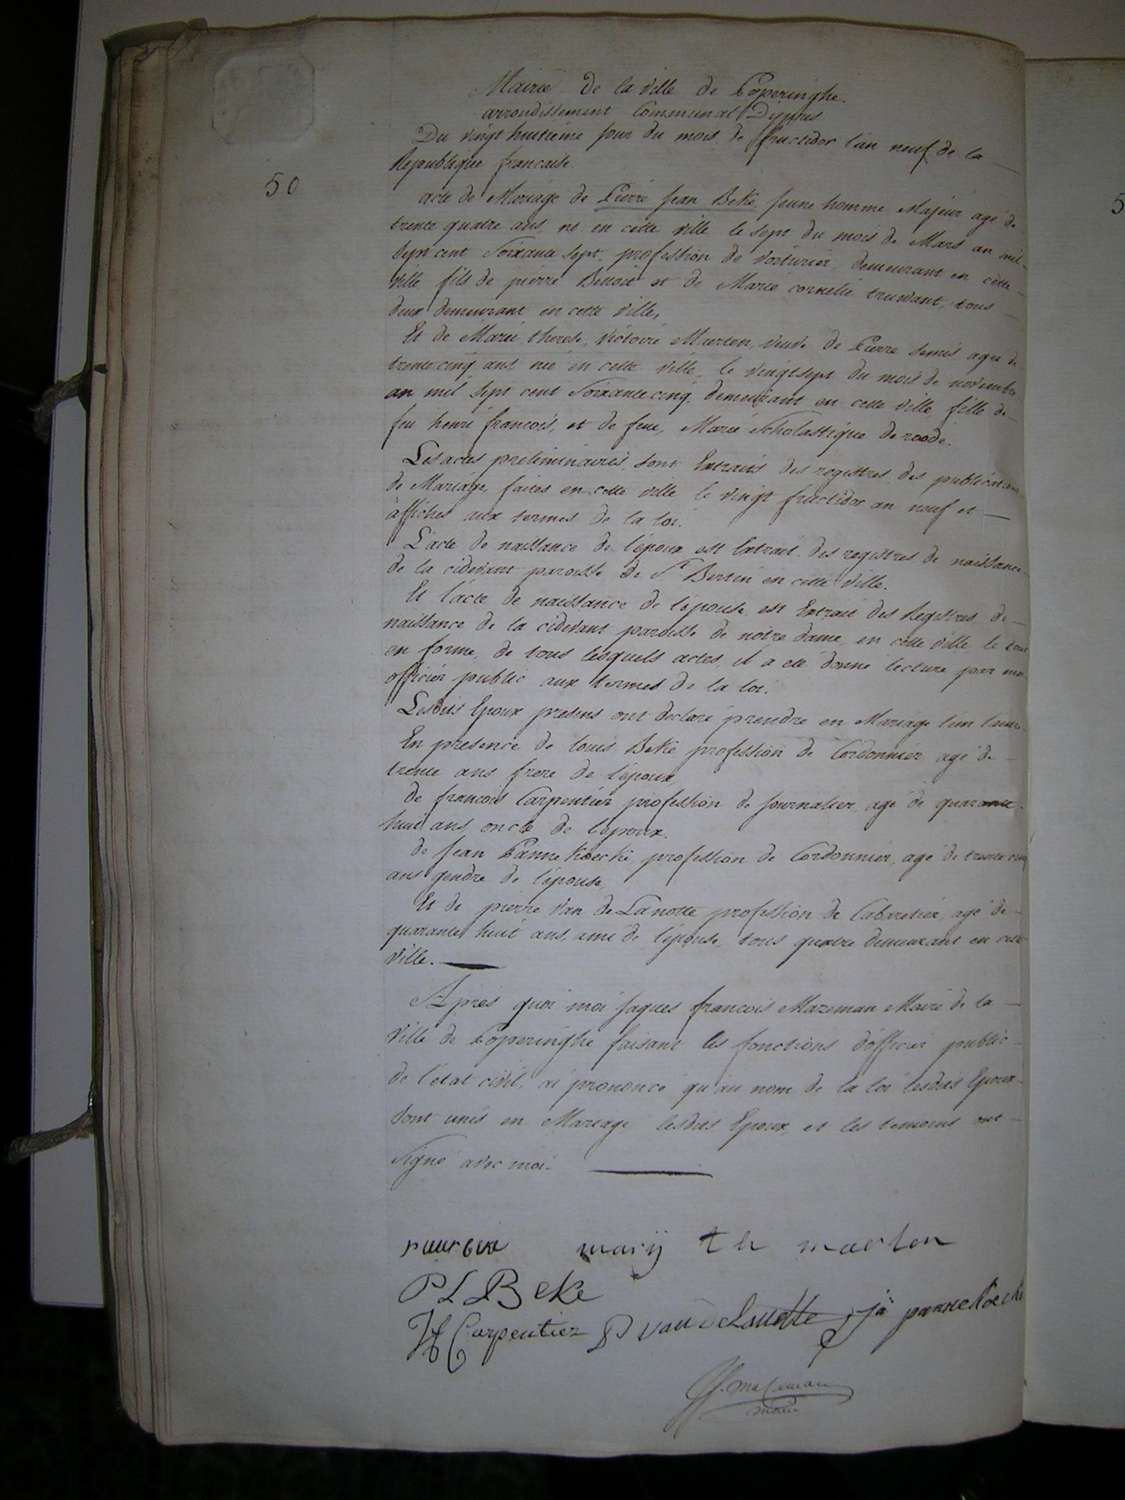 Mairie de la ville de Poperinghe.
arrondissement Communal Dipres
Du vingt huitieme jour du mois de fructidor l'an neuf de la
Republique francaise
50
acte de Mariage de Pierre Jean Beke, jeune homme Majeur agé de
trente quatre ans, né en cette ville le sept du mois de Mars an mil
Sept cent Soixante sept, profession de voiturier, demeurant en cette
ville fils de pierre Benoit et de Marie cornelie truwant, tous
deux demeurant en cette ville,
Et de Marie therese, victoire Maerten, veuve de Pierre Semis agée de
trente cinq ans née en cette ville, le vingt sept du mois de novembre
an mil sept cent Soixante cinq, demeurant en cette ville fille de
feu henri francois, et de feue, Marie Scholastique de roode.
Les actes preliminaires, sont Extraits des registres des publications
de Mariage, faites en cette ville le vingt fructidor an neuf et
affichés aux termes de la loi.
L'acte de naissance de l'époux est Extrait des registres de naissance
de la cidevant paroisse de St Bertin en cette ville.
Et l'acte de naissance de l'épouse est Extrait des Registres, de
naissance de la cidevant paroisse de notre dame, en cette ville le tout
en forme, de tous lesquels actes, il a été donné lecture par moi
officier public aux termes de la loi.
Lesdits Epoux presens ont declaré prendre en Mariage l'un l'autre
En presence de louis Beke profession de Cordonnier agé de
trente ans frere de l'époux,
de francois Carpentier profession de journalier, agé de quarante
huit ans, oncle de l'époux.
de Jean Pannekoecke, profession de Cordonnier, agé de trente cinq
ans gendre de l'épouse,
Et de pierre Van de Lanotte profession de Cabaretier, agé de
quarante huit ans, ami de l'épouse, tous quatre demeurant en cette
ville.
Après quoi moi Jaques francois Mazeman Maire de la
ville de Poperinghe faisant les fonctions d'officier public
de l'etat civil, ai prononcé qu'au nom de la loi lesdits Epoux
sont unis en Mariage lesdits Epoux, et les temoins ont
Signé avec moi.
marij th maerten
P L Beke
Carpentier P van de Lanotte ja pannekoecke
Mazeman
maire
5